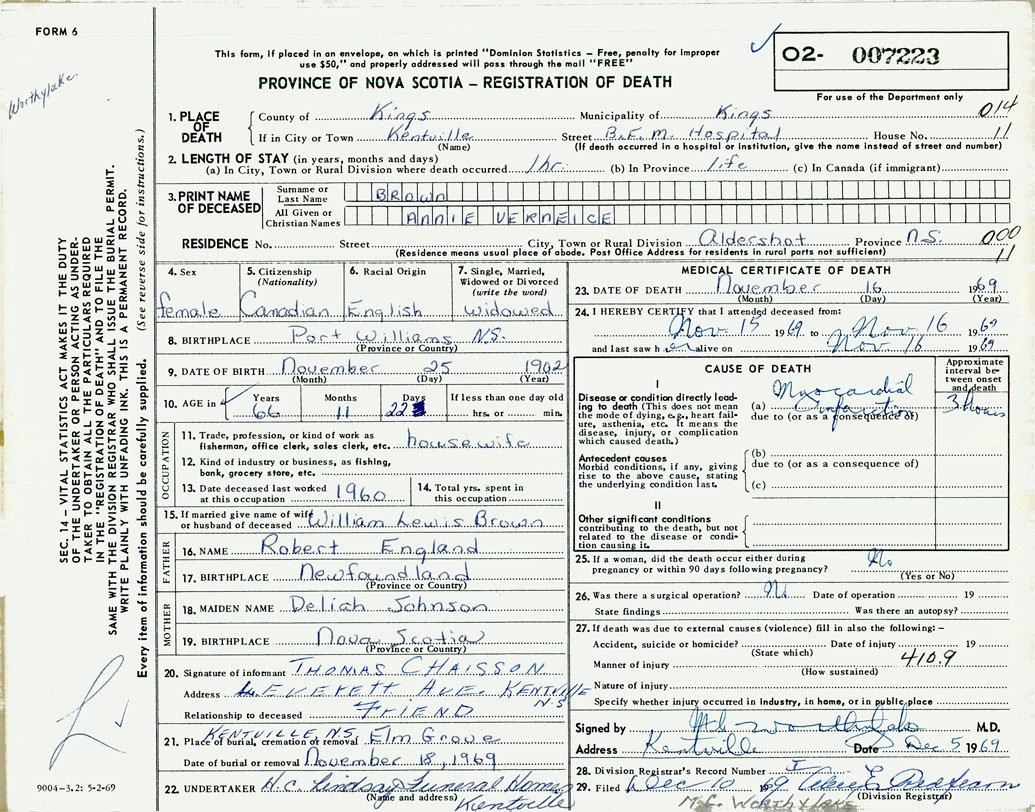 FORM 6
Worthylake.
This form, if placed in an envelope, on which is printed "Dominion Statistics - Free, penalty for improper
use $50," and properly addressed will pass through the mail "FREE"
PROVINCE OF NOVA SCOTIA - REGISTRATION OF DEATH
02- 007223
For use of the Department only
SEC. 14 - VITAL STATISTICS ACT MAKES IT THE DUTY
OF THE UNDERTAKER OR PERSON ACTING AS UNDER-
TAKER TO OBTAIN ALL THE PARTICULARS REQUIRED
IN THE "REGISTRATION OF DEATH" AND TO FILE THE
SAME WITH THE DIVISION REGISTRAR WHO SHALL ISSUE THE BURIAL PERMIT.
WRITE PLAINLY WITH UNFADING INK. THIS IS A PERMANENT RECORD.
Every item of information should be carefully supplied. (See reverse side for instructions.)
1. PLACE OF DEATH
County of Kings Municipality of Kings 014
If in City or Town Kentville Street B.F.M. Hospital House No. 11
(Name) (If death occurred in a hospital or institution, give the name instead of street and number)
2. LENGTH OF STAY (in years, months and days)
(a) In City, Town or Rural Division where death occurred 1 hr. (b) In Province life (c) In Canada (if immigrant)
3. PRINT NAME OF DECEASED
Surname or Last Name BROWN
All Given or Christian Names ANNIE VERNEICE
RESIDENCE No. Street City, Town or Rural Division Aldershot Province N.S. 000
(Residence means usual place of abode. Post Office Address for residents in rural parts not sufficient) 11
4. Sex female
5. Citizenship (Nationality) Canadian
6. Racial Origin English
7. Single, Married, Widowed or Divorced (write the word) widowed
8. BIRTHPLACE Port Williams N.S.
(Province or Country)
9. DATE OF BIRTH November 25 1902
(Month) (Day) (Year)
10. AGE in Years 66 Months 11 Days 22 If less than one day old hrs. or min.
OCCUPATION
11. Trade, profession, or kind of work as
fisherman, office clerk, sales clerk, etc. housewife
12. Kind of industry or business, as fishing,
bank, grocery store, etc.
13. Date deceased last worked at this occupation 1960
14. Total yrs. spent in this occupation
15. If married give name of wife or husband of deceased William Lewis Brown
FATHER
16. NAME Robert England
17. BIRTHPLACE Newfoundland
(Province or Country)
MOTHER
18. MAIDEN NAME Deliah Johnson
19. BIRTHPLACE Nova Scotia
(Province or Country)
20. Signature of informant THOMAS CHAISSON
Address EVERETT AVE. KENTVILLE N.S
Relationship to deceased FRIEND
21. Place of burial, cremation or removal KENTVILLE N.S. Elm Grove
Date of burial or removal November 18, 1969
22. UNDERTAKER H.C. Lindsay Funeral Home
(Name and address) Kentville
9004-3.2: 5-2-69
MEDICAL CERTIFICATE OF DEATH
23. DATE OF DEATH November 16 1969
(Month) (Day) (Year)
24. I HEREBY CERTIFY that I attended deceased from:
Nov. 15 1969 to Nov 16 1969
and last saw her alive on Nov 16 1969
CAUSE OF DEATH
Approximate interval between onset and death
I
Disease or condition directly leading to death (This does not mean
the mode of dying, e.g., heart failure, asthenia, etc. It means the
disease, injury, or complication
which caused death.)
(a) Myocardial Infarction 3 hours
due to (or as a consequence of)
Antecedent causes
Morbid conditions, if any, giving
rise to the above cause, stating
the underlying condition last.
(b)
due to (or as a consequence of)
(c)
II
Other significant conditions
contributing to the death, but not
related to the disease or condition causing it.
25. If a woman, did the death occur either during
pregnancy or within 90 days following pregnancy? No
(Yes or No)
26. Was there a surgical operation? Date of operation 19
State findings Was there an autopsy?
27. If death was due to external causes (violence) fill in also the following: -
Accident, suicide or homicide? Date of injury 19
(State which)
Manner of injury 410.9
(How sustained)
Nature of injury
Specify whether injury occurred in Industry, in home, or in public place
Signed by M.D.
Address Kentville Date Dec 5 1969
28. Division Registrar's Record Number
29. Filed Dec 10 1969
(Division Registrar)
M.C. WORTHYLAKE